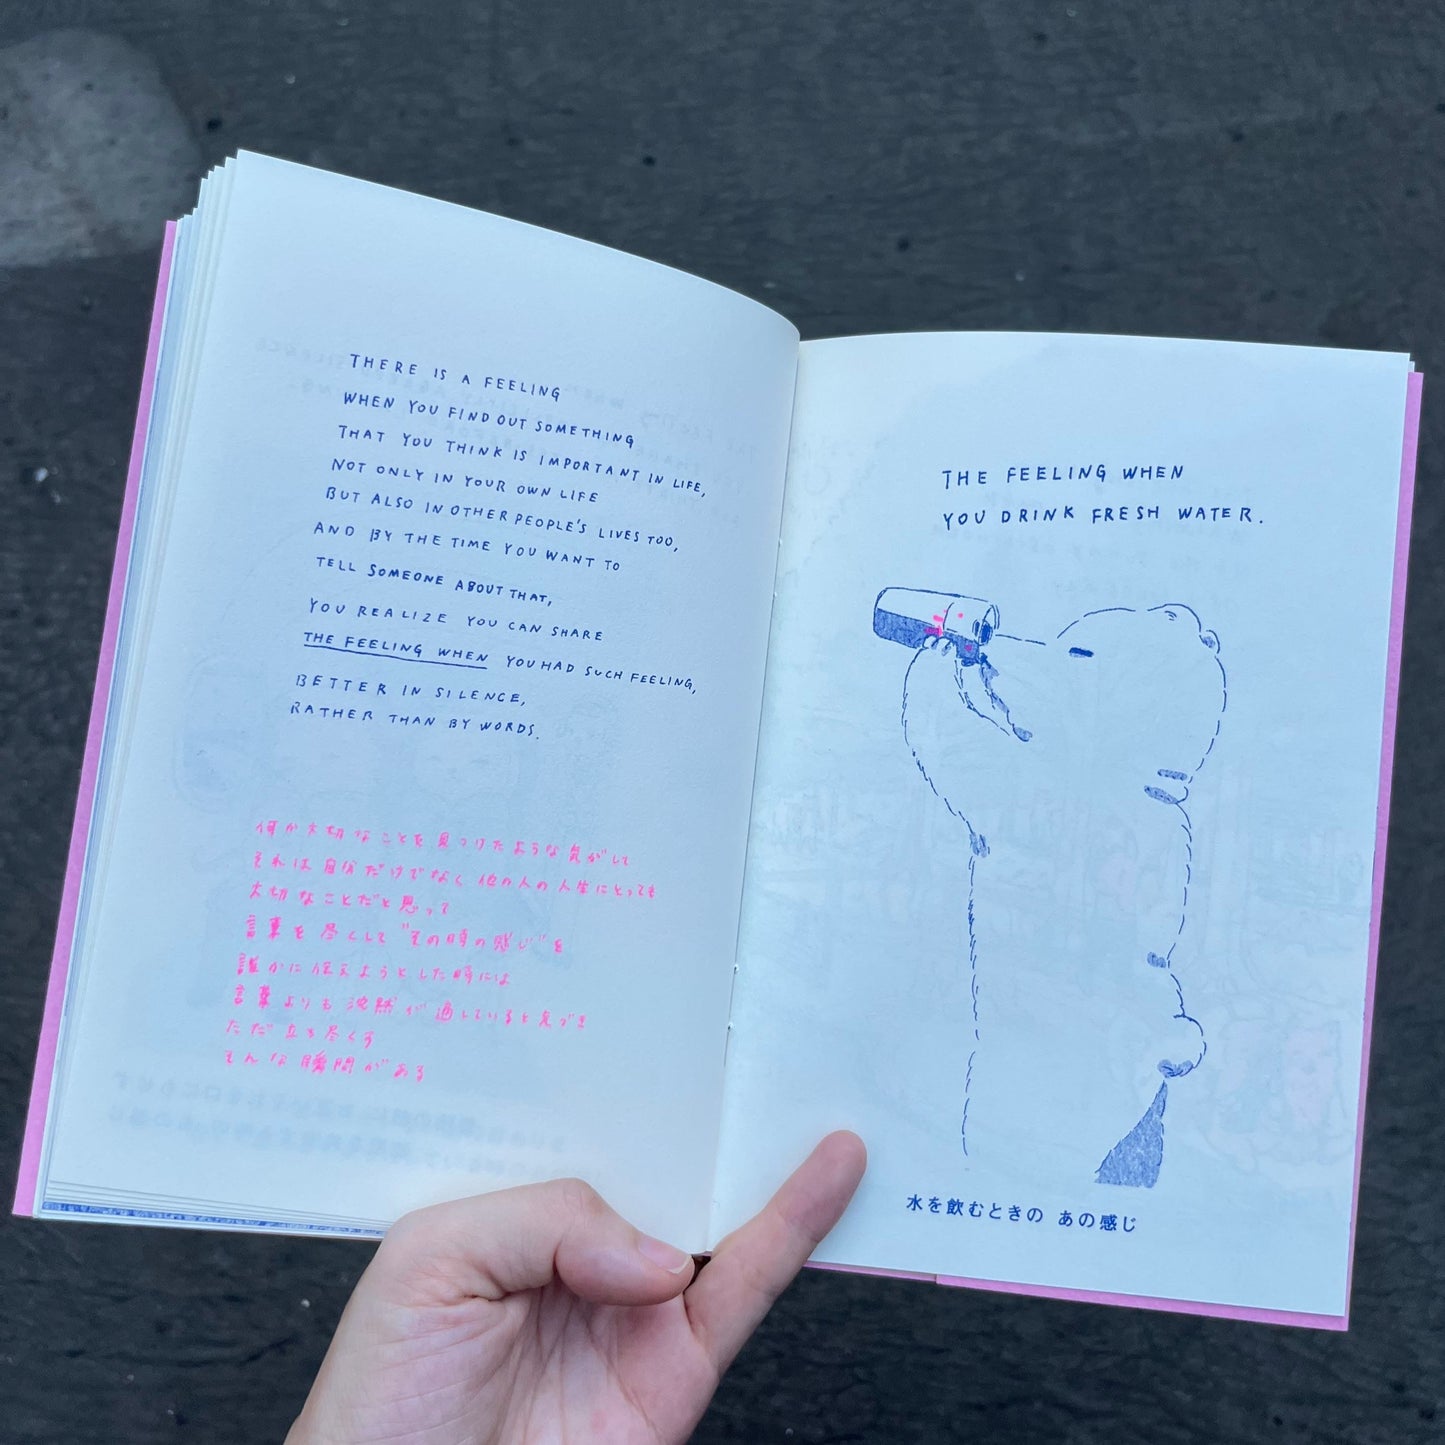 THERE IS A FEELING
WHEN YOU FIND OUT SOMETHING
THAT YOU THINK IS IMPORTANT IN LIFE,
NOT ONLY IN YOUR OWN LIFE
BUT ALSO IN OTHER PEOPLE'S LIVES TOO,
AND BY THE TIME YOU WANT TO
TELL SOMEONE ABOUT THAT,
YOU REALIZE YOU CAN SHARE
THE FEELING WHEN YOU HAD SUCH FEELING,
BETTER IN SILENCE,
RATHER THAN BY WORDS.
何か大切なことを見つけたような気がして
それは自分だけでなく他の人の人生にとっても
大切なことだと思って
言葉を尽くして"その時の感じ"を
誰かに伝えようとした時には
言葉よりも沈黙が適していると気づき
ただ立ち尽くす
そんな瞬間がある
THE FEELING WHEN
YOU DRINK FRESH WATER.
水を飲むときの あの感じ